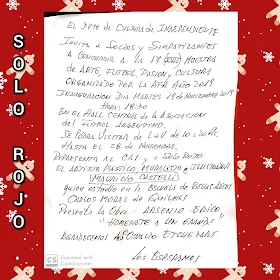 SOLO ROJO
El Dpto de Cultura de Independiente
Invita a Socios y Simpatizantes
a Concurrir a la 1ª Muestra
de Arte, Futbol, Pasion, Cultura
Organizado por la AFA Año 2019
Inauguracion Dia Martes 19 de Noviembre 2019
Hora: 18:30
En el Hall Central de la Asociacion
del Futbol Argentino.
Se Podra Visitar de L a V de 10 a 20 H.
Hasta el 28 de Noviembre.
Representa al CAI y a Solo Rojo.
El Artista Plastico Muralista e Ilustrador
(Mauricio Castelli)
quien estudió en la Escuela de Bellas Artes
Carlos Morel de Quilmes
Presenta la Obra: Arsenio Erico
"Homenaje a un Grande"
Agradecemos A Osvaldo Etchebart
Los Esperamos
CS Scanned with
CamScanner